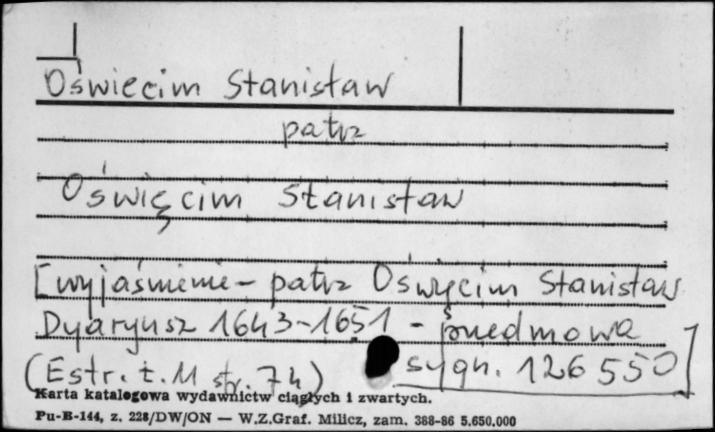 Oświecim Stanisław
patrz
Oświęcim Stanisław
[wyjaśnienie - patrz Oświęcim Stanisław
Dyaryusz 1643-1651 - przedmowa
sygn. 126 550]
(Estr. t. 11 str. 74)
Karta katalogowa wydawnictw ciągłych i zwartych.
Pu-B-144, z. 228/DW/ON — W.Z.Graf. Milicz, zam. 388-86 5.650.000